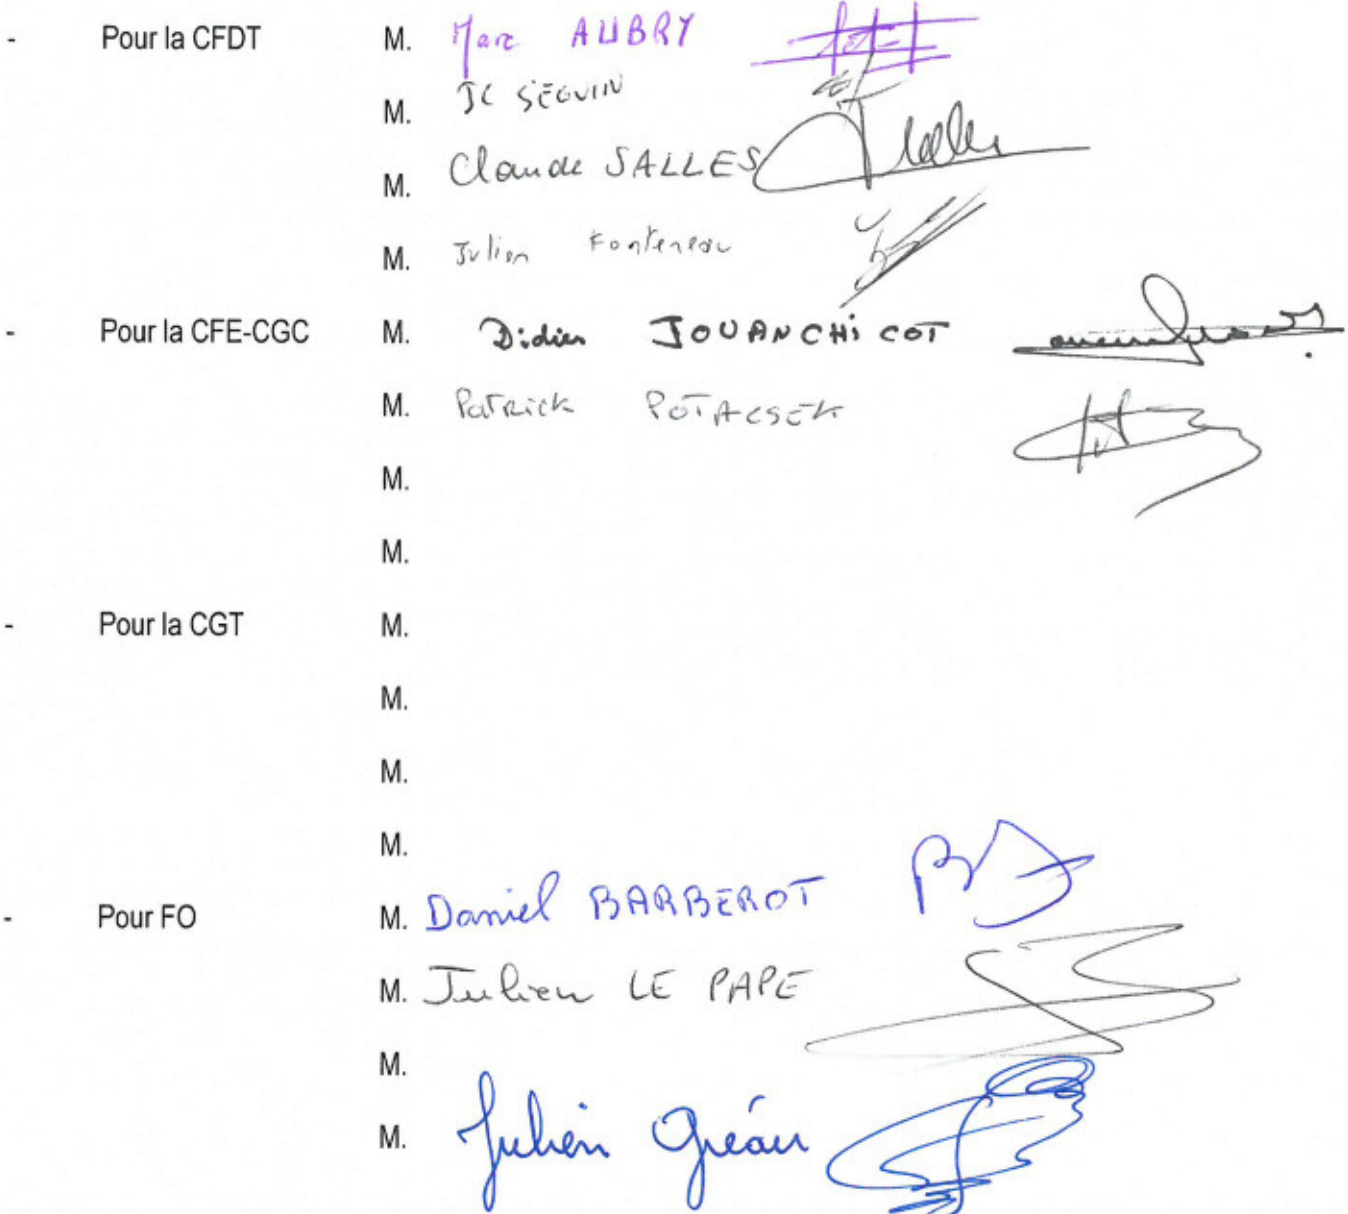 - Pour la CFDT M. Marc AUBRY
M. JC SEGUIN
M. Claude SALLES
M. Julien Fonteneau
- Pour la CFE-CGC M. Didier JOUANCHICOT
M. Patrick POTACSEK
M.
M.
- Pour la CGT M.
M.
M.
M.
- Pour FO M. Daniel BARBEROT
M. Julien LE PAPE
M.
M. Julien Gréau